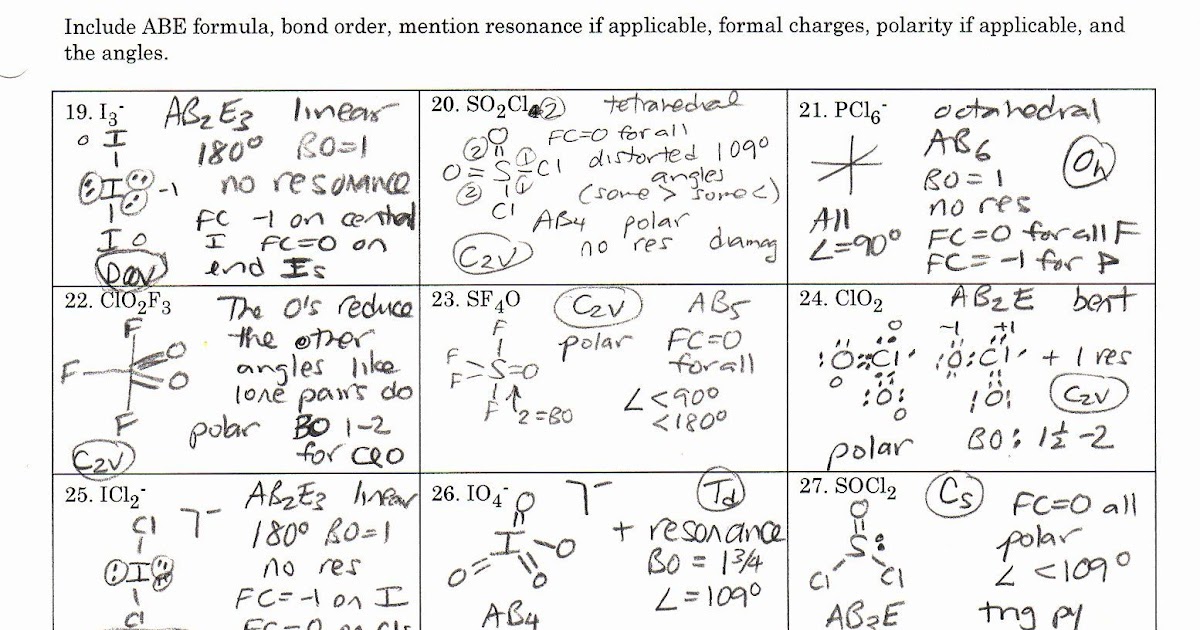 Include ABE formula, bond order, mention resonance if applicable, formal charges, polarity if applicable, and
the angles.
19. I3- AB2E3 linear
180° BO=1
no resonance
FC -1 on central
I FC=0 on
end Is
O I
I -1
I O
D∞v
20. SO2Cl2 tetrahedral
FC=0 for all
distorted 109°
angles
(some > some <)
AB4 polar
no res diamag
2 O 1
O=S-Cl
2 1
Cl
C2v
21. PCl6- octahedral
AB6
Oh
BO=1
no res
All
∠=90°
FC=0 for all F
FC=-1 for P
22. ClO2F3 The O's reduce
the other
angles like
lone pairs do
polar BO 1-2
for ClO
F
F O
O
F
C2v
23. SF4O C2v AB5
polar FC=0
for all
∠<90°
<180°
F
F S=O
F
F 2=BO
24. ClO2 AB2E bent
O -1 +1
:O=Cl· :O:Cl· + 1 res
O :O: :O:
O
C2v
polar BO: 1½-2
25. ICl2- AB2E3 linear
180° BO=1
no res
FC=-1 on I
FC=0 on Cls
Cl -
I
Cl
26. IO4- O - Td
+ resonance
BO = 1 3/4
∠=109°
I-O
O= O
AB4
27. SOCl2 Cs FC=0 all
polar
∠ <109°
O
S:
Cl Cl
AB3E trig py